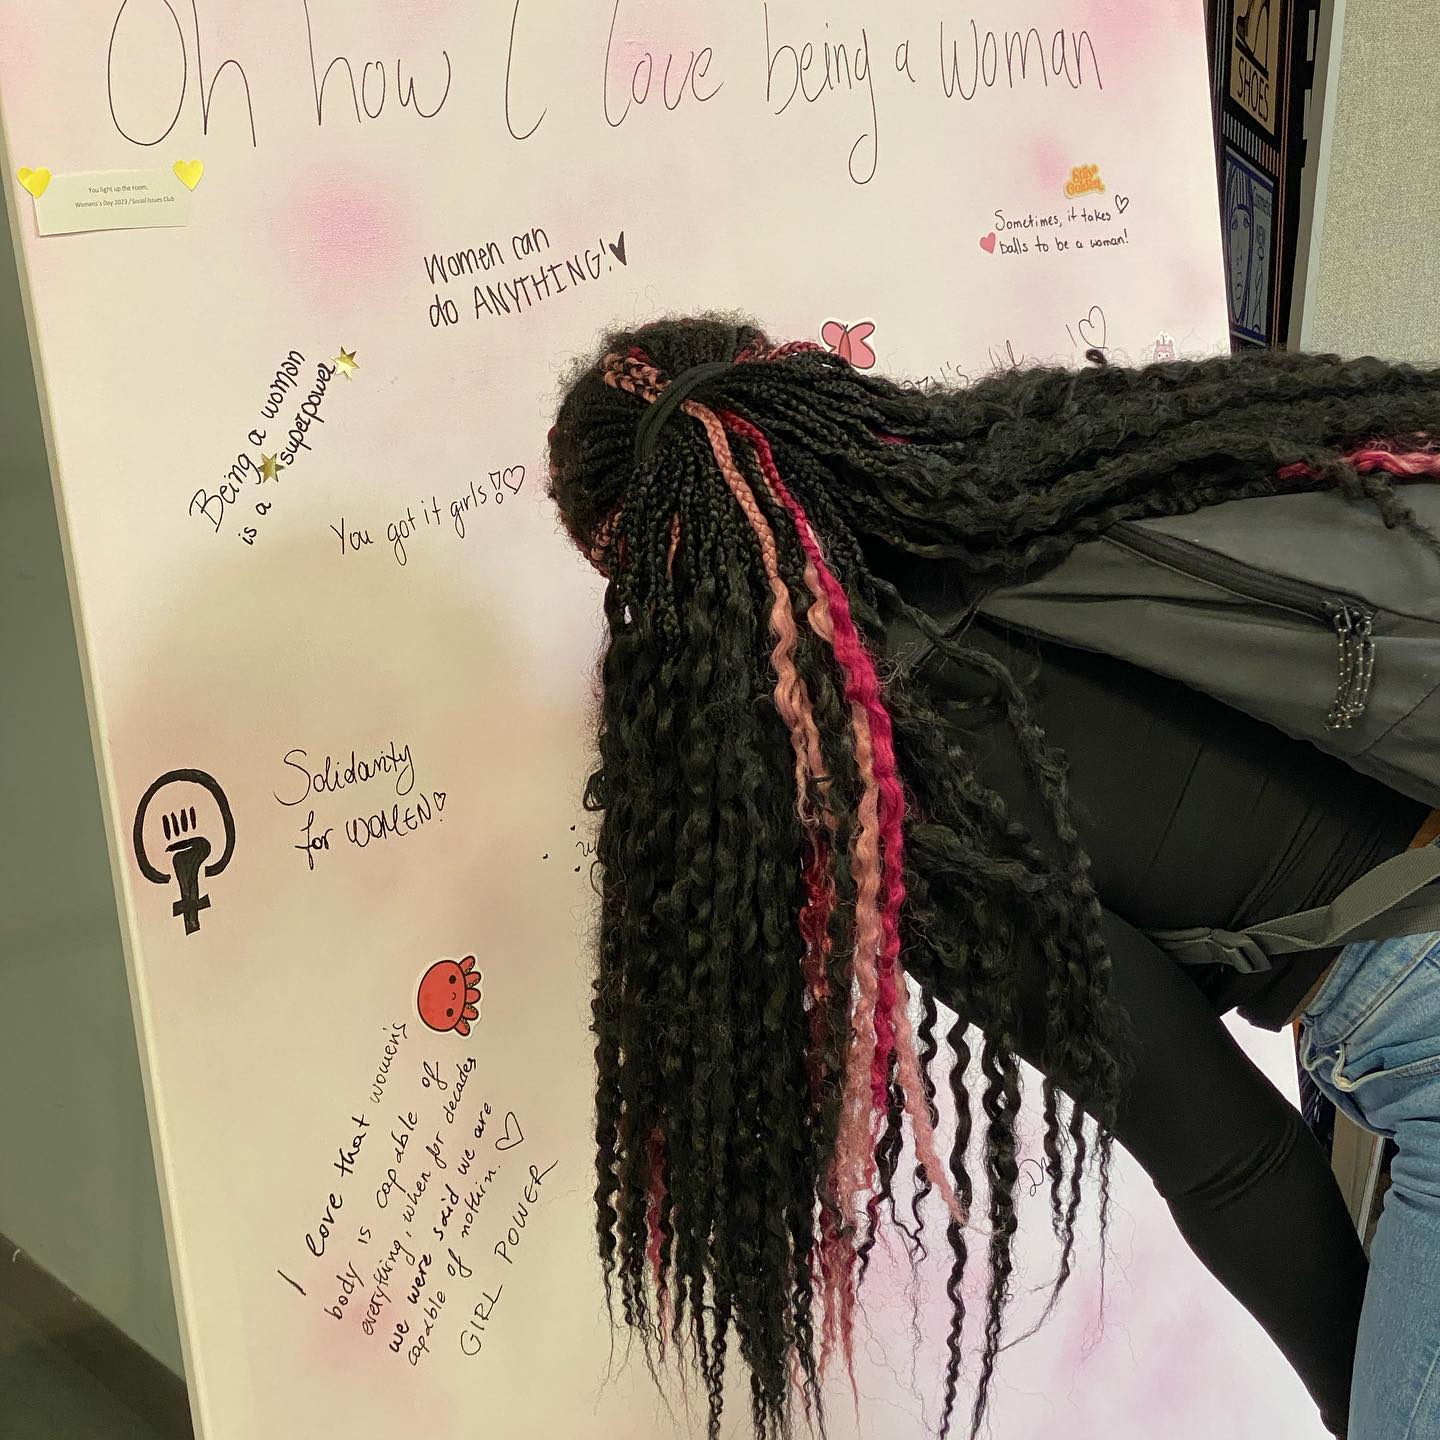 Oh how I love being a woman
SHOES
You light up the room.
Womens's Day 2023 / Social Issues Club
Stay
Golden
Sometimes, it takes
balls to be a woman!
Women can
do ANYTHING!
Being a woman
is a superpower
You got it girls!
Solidarity
for WOMEN!
I love that women's
body is capable of
everything, when for decades
we were said we are
capable of nothin.
GIRL POWER